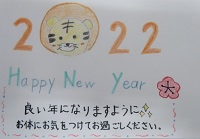 2022
Happy New Year
良い年になりますように✨
お体にお気をつけてお過ごしください。